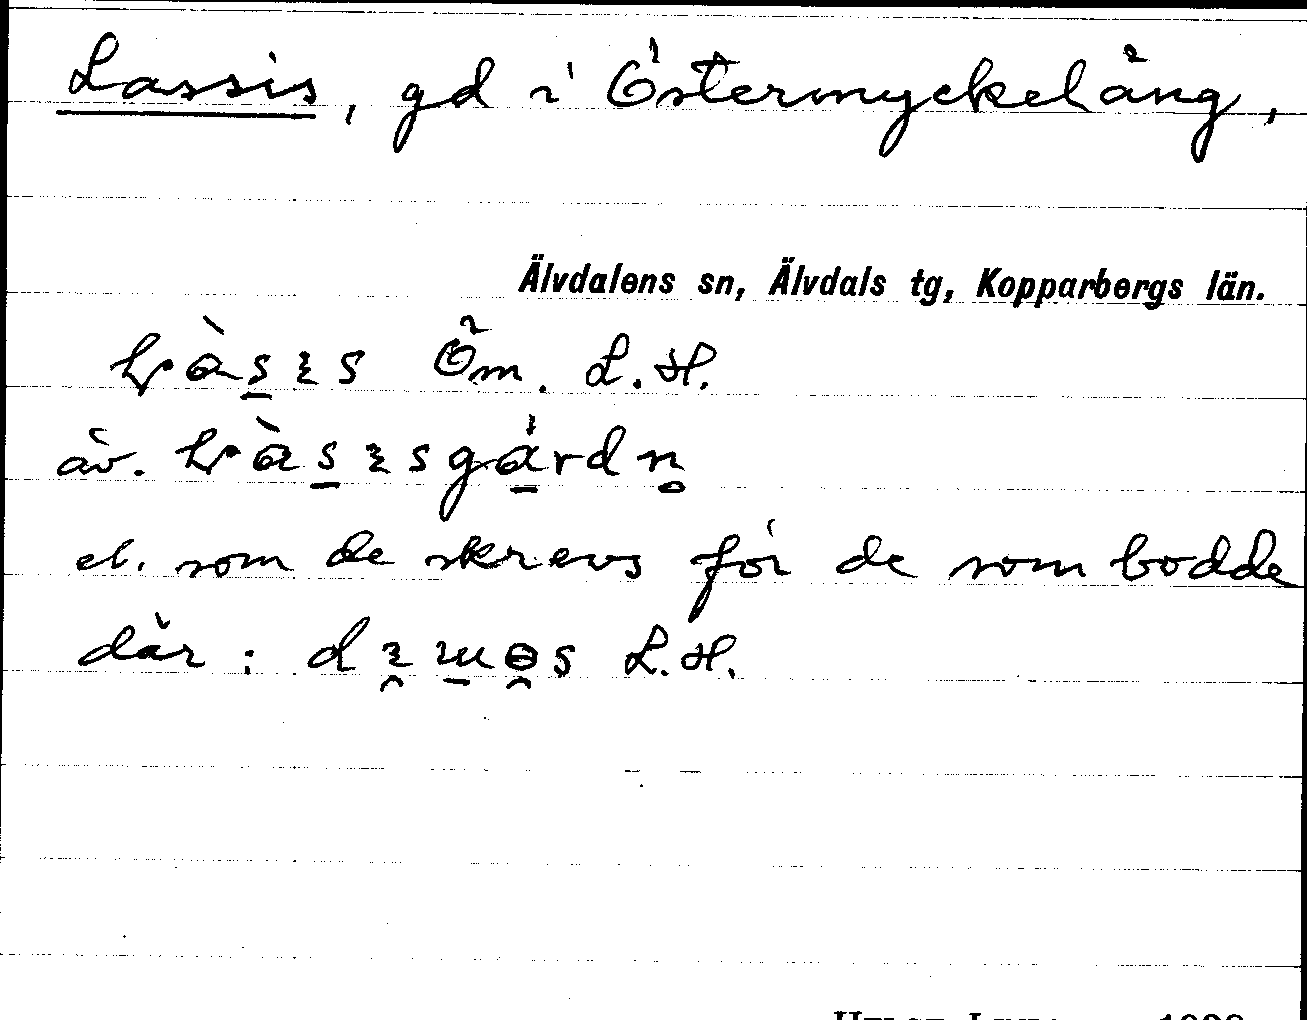 Lassis, gd i Östermyckeläng,
Älvdalens sn, Älvdals tg, Kopparbergs län.
Öm. L.H.
äv.
el. som de skrevs för de som bodde
där: L.H.